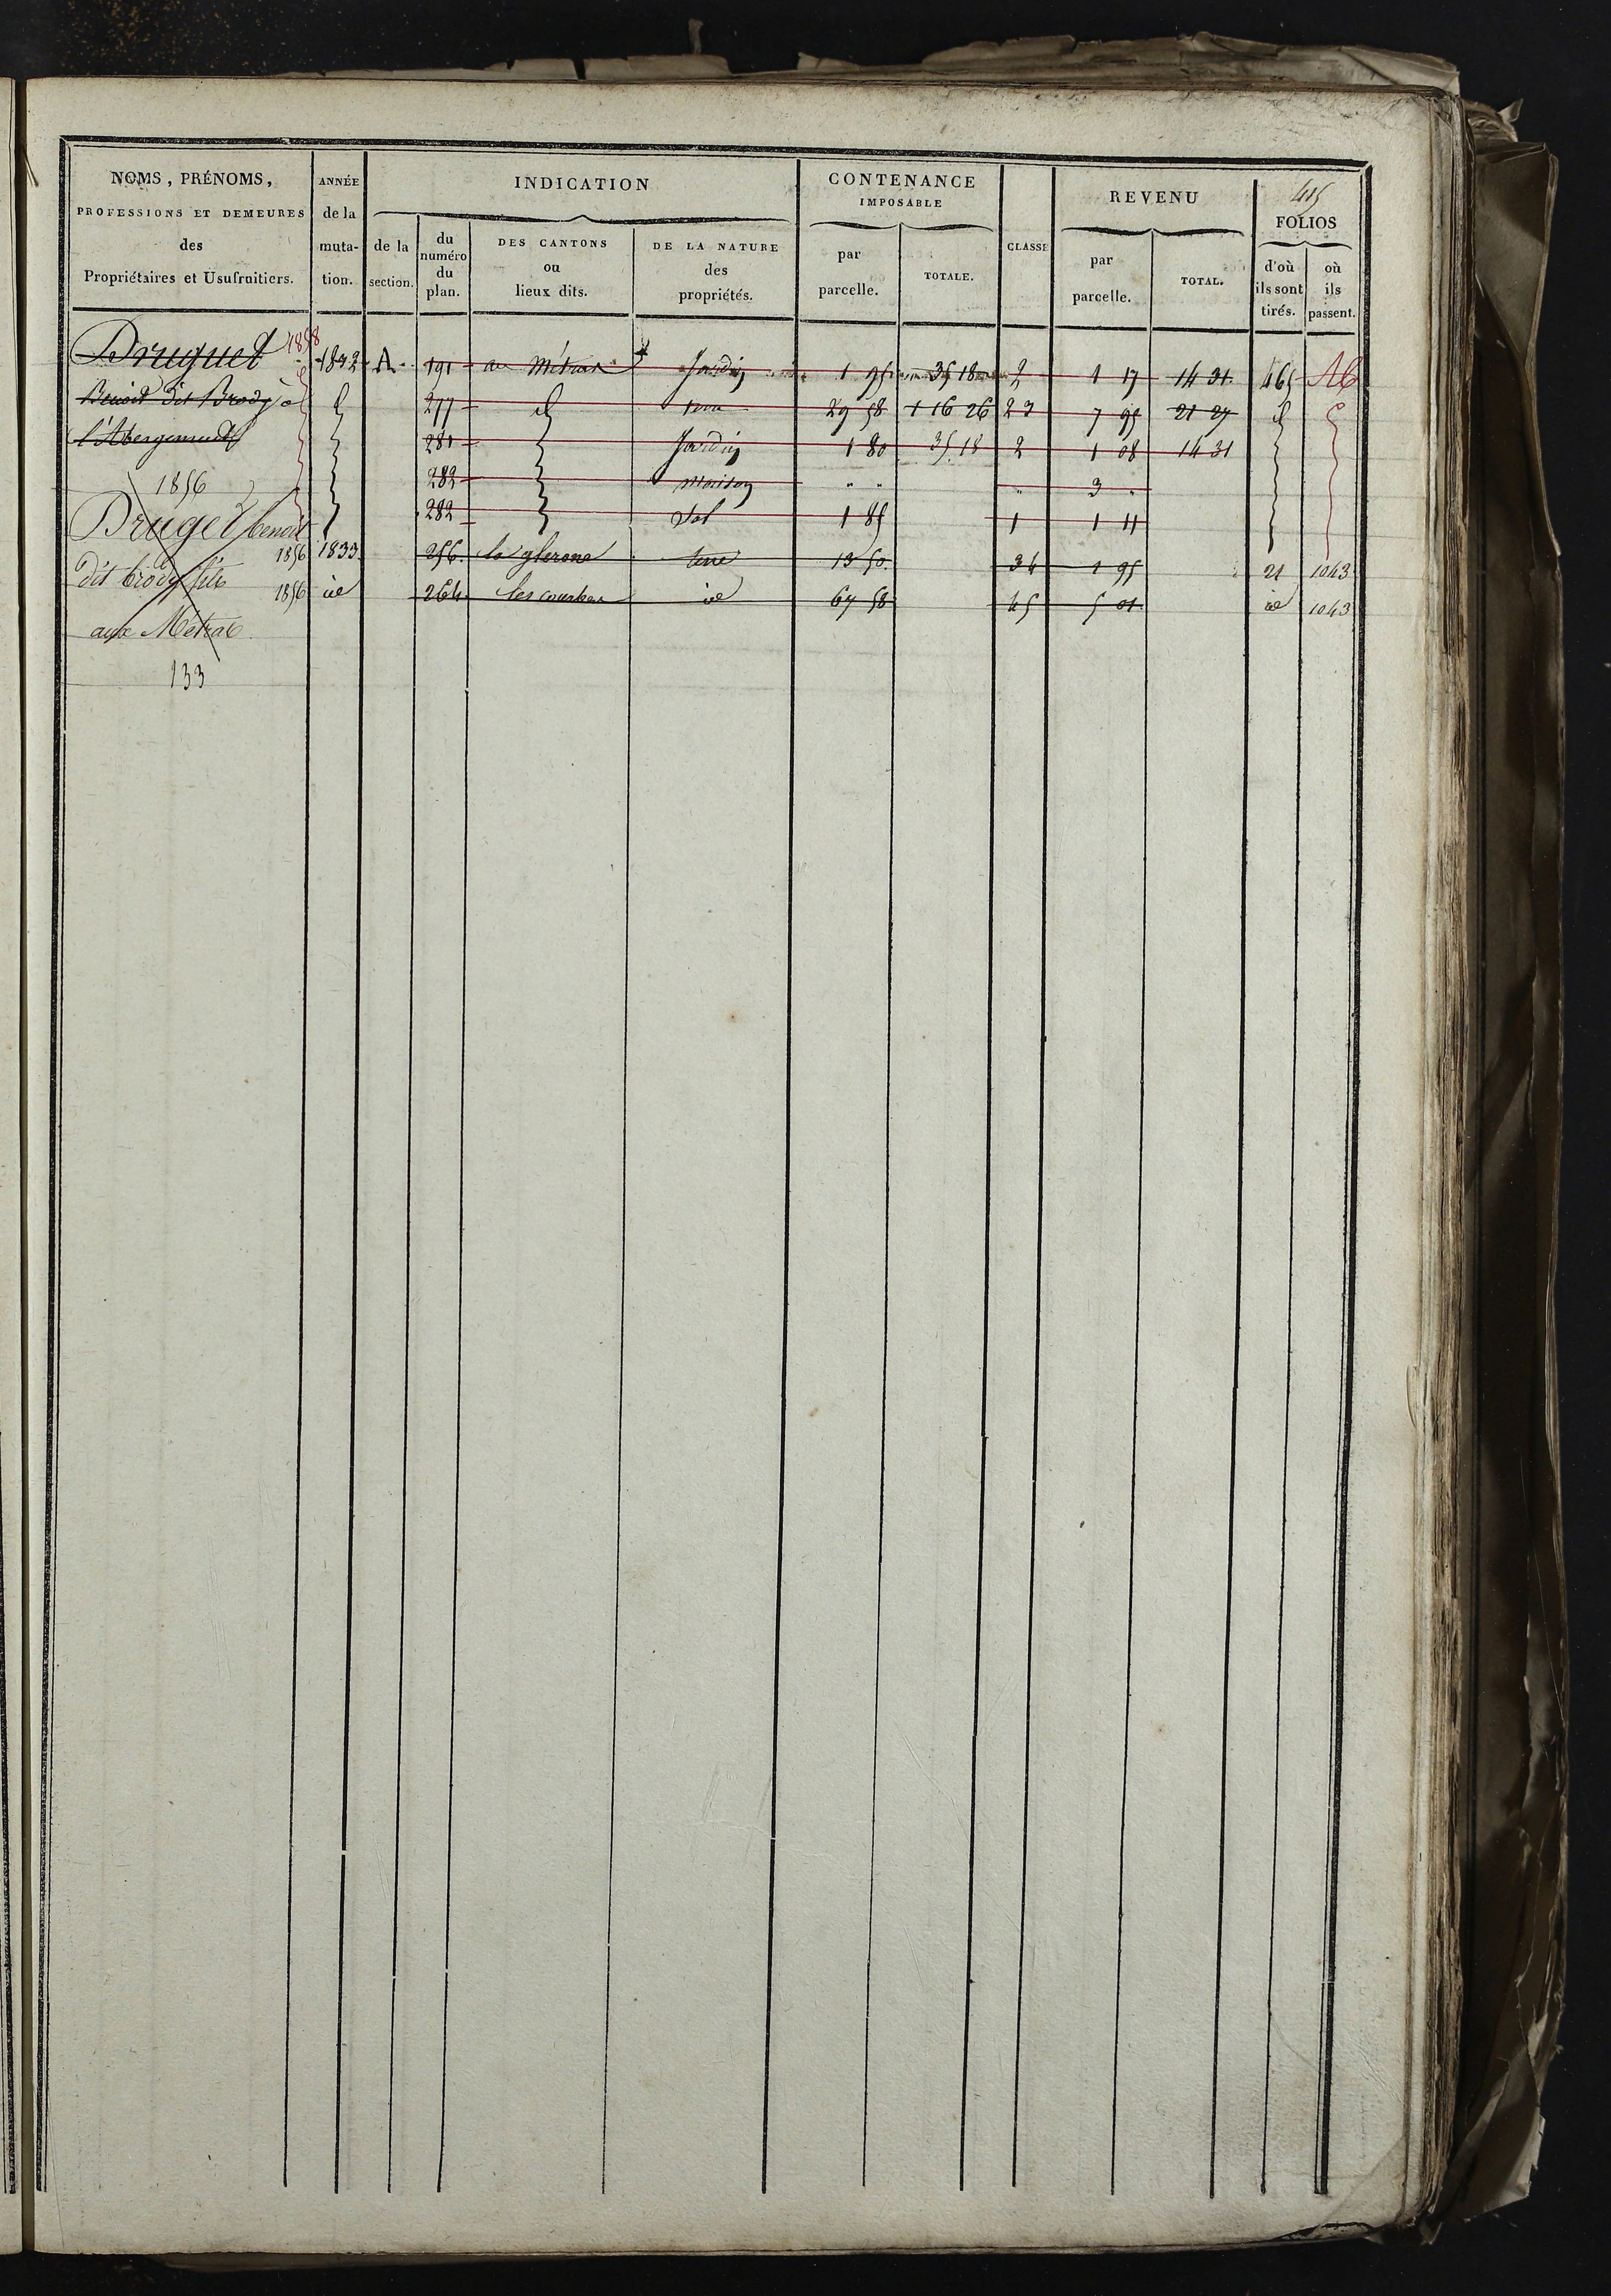 415
NOMS, PRÉNOMS, PROFESSIONS ET DEMEURES des Propriétaires et Usufruitiers.
ANNÉE de la muta-tion.
INDICATION
de la section.
du numéro du plan.
DES CANTONS ou lieux dits.
DE LA NATURE des propriétés.
CONTENANCE IMPOSABLE
par parcelle.
TOTALE.
CLASSE
REVENU
par parcelle.
TOTAL.
FOLIOS
d'où ils sont tirés.
où ils passent.
Druguet 1858 A 191 au Métrat Jardin 1 95 35 18 2 1 17 14 31 465
Benoit dit Brody à 277 d 29 58 1 16 26 23 7 95 21 27 d
l'Abergement 281 Jardin 1 80 35 18 2 1 08 14 31
1856 282 Maison " " " 3 "
Druget benoit 282 Sol 1 85 1 1 11
1856 1833 256 la glerone terre 13 50 34 1 95 21 1043
dit brody fils 1856 id 264 les courbes id 67 58 45 5 01 id 1043
aux Métrat
133